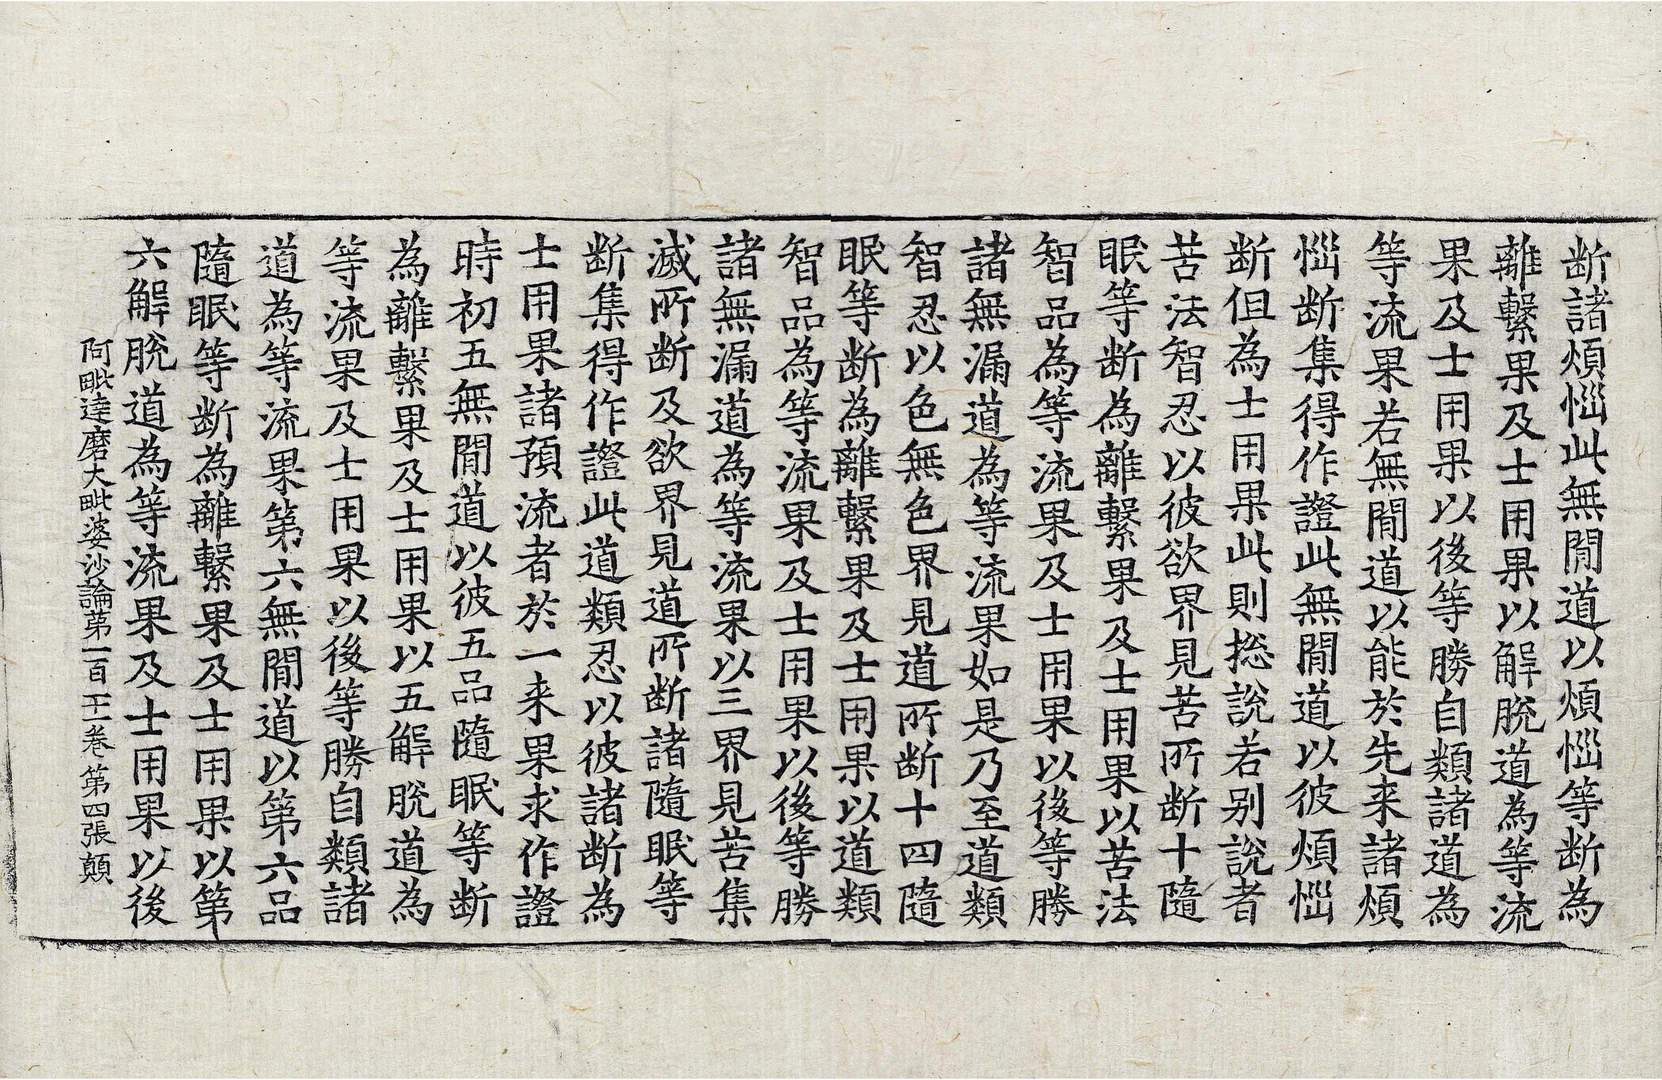 断諸煩惱此無間道以煩惱等断為
離繫果及士用果以解脫道為等流
果及士用果以後等勝自類諸道為
等流果若無間道以能於先来諸煩
惱断集得作證此無間道以彼煩惱
断但為士用果此則捴說若别說者
苦法智忍以彼欲界見苦所断十隨
眠等断為離繫果及士用果以苦法
智品為等流果及士用果以後等勝
諸無漏道為等流果如是乃至道類
智忍以色無色界見道所断十四隨
眠等断為離繫果及士用果以道類
智品為等流果及士用果以後等勝
諸無漏道為等流果以三界見苦集
滅所断及欲界見道所断諸隨眠等
断集得作證此道類忍以彼諸断為
士用果諸預流者於一来果求作證
時初五無間道以彼五品隨眠等断
為離繫果及士用果以五解脫道為
等流果及士用果以後等勝自類諸
道為等流果第六無間道以第六品
隨眠等断為離繫果及士用果以第
六解脫道為等流果及士用果以後
阿毗達磨大毗婆沙論第一百五十二卷 第四張 顛